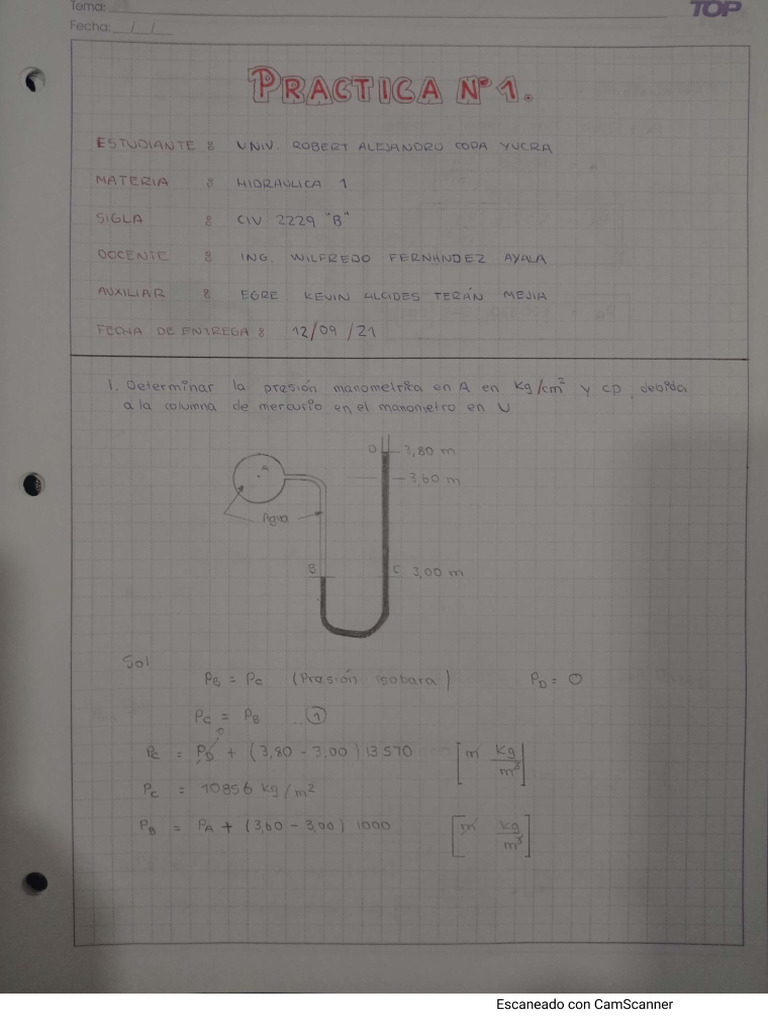 Tema:
TOP
Fecha: / /
PRACTICA Nº 1.
ESTUDIANTE : UNIV. ROBERT ALEJANDRO COPA YUCRA
MATERIA : HIDRAULICA 1
SIGLA : CIV 2229 "B"
DOCENTE : ING. WILFREDO FERNANDEZ AYALA
AUXILIAR : EGRE KEVIN ALCIDES TERÁN MEJIA
FECHA DE ENTREGA : 12/09/21
1. Determinar la presión manometrica en A en Kg/cm² y cp, debida
a la columna de mercurio en el manometro en U
D 3,80 m
A 3,60 m
Agua
B C 3,00 m
Sol
P_B = P_C (Presión isobara) P_D = 0
P_C = P_B ... ①
0
P_C = P_D + (3,80 - 3,00) 13570 [m Kg/m³]
P_C = 10856 kg/m²
P_B = P_A + (3,60 - 3,00) 1000 [m kg/m³]
Escaneado con CamScanner